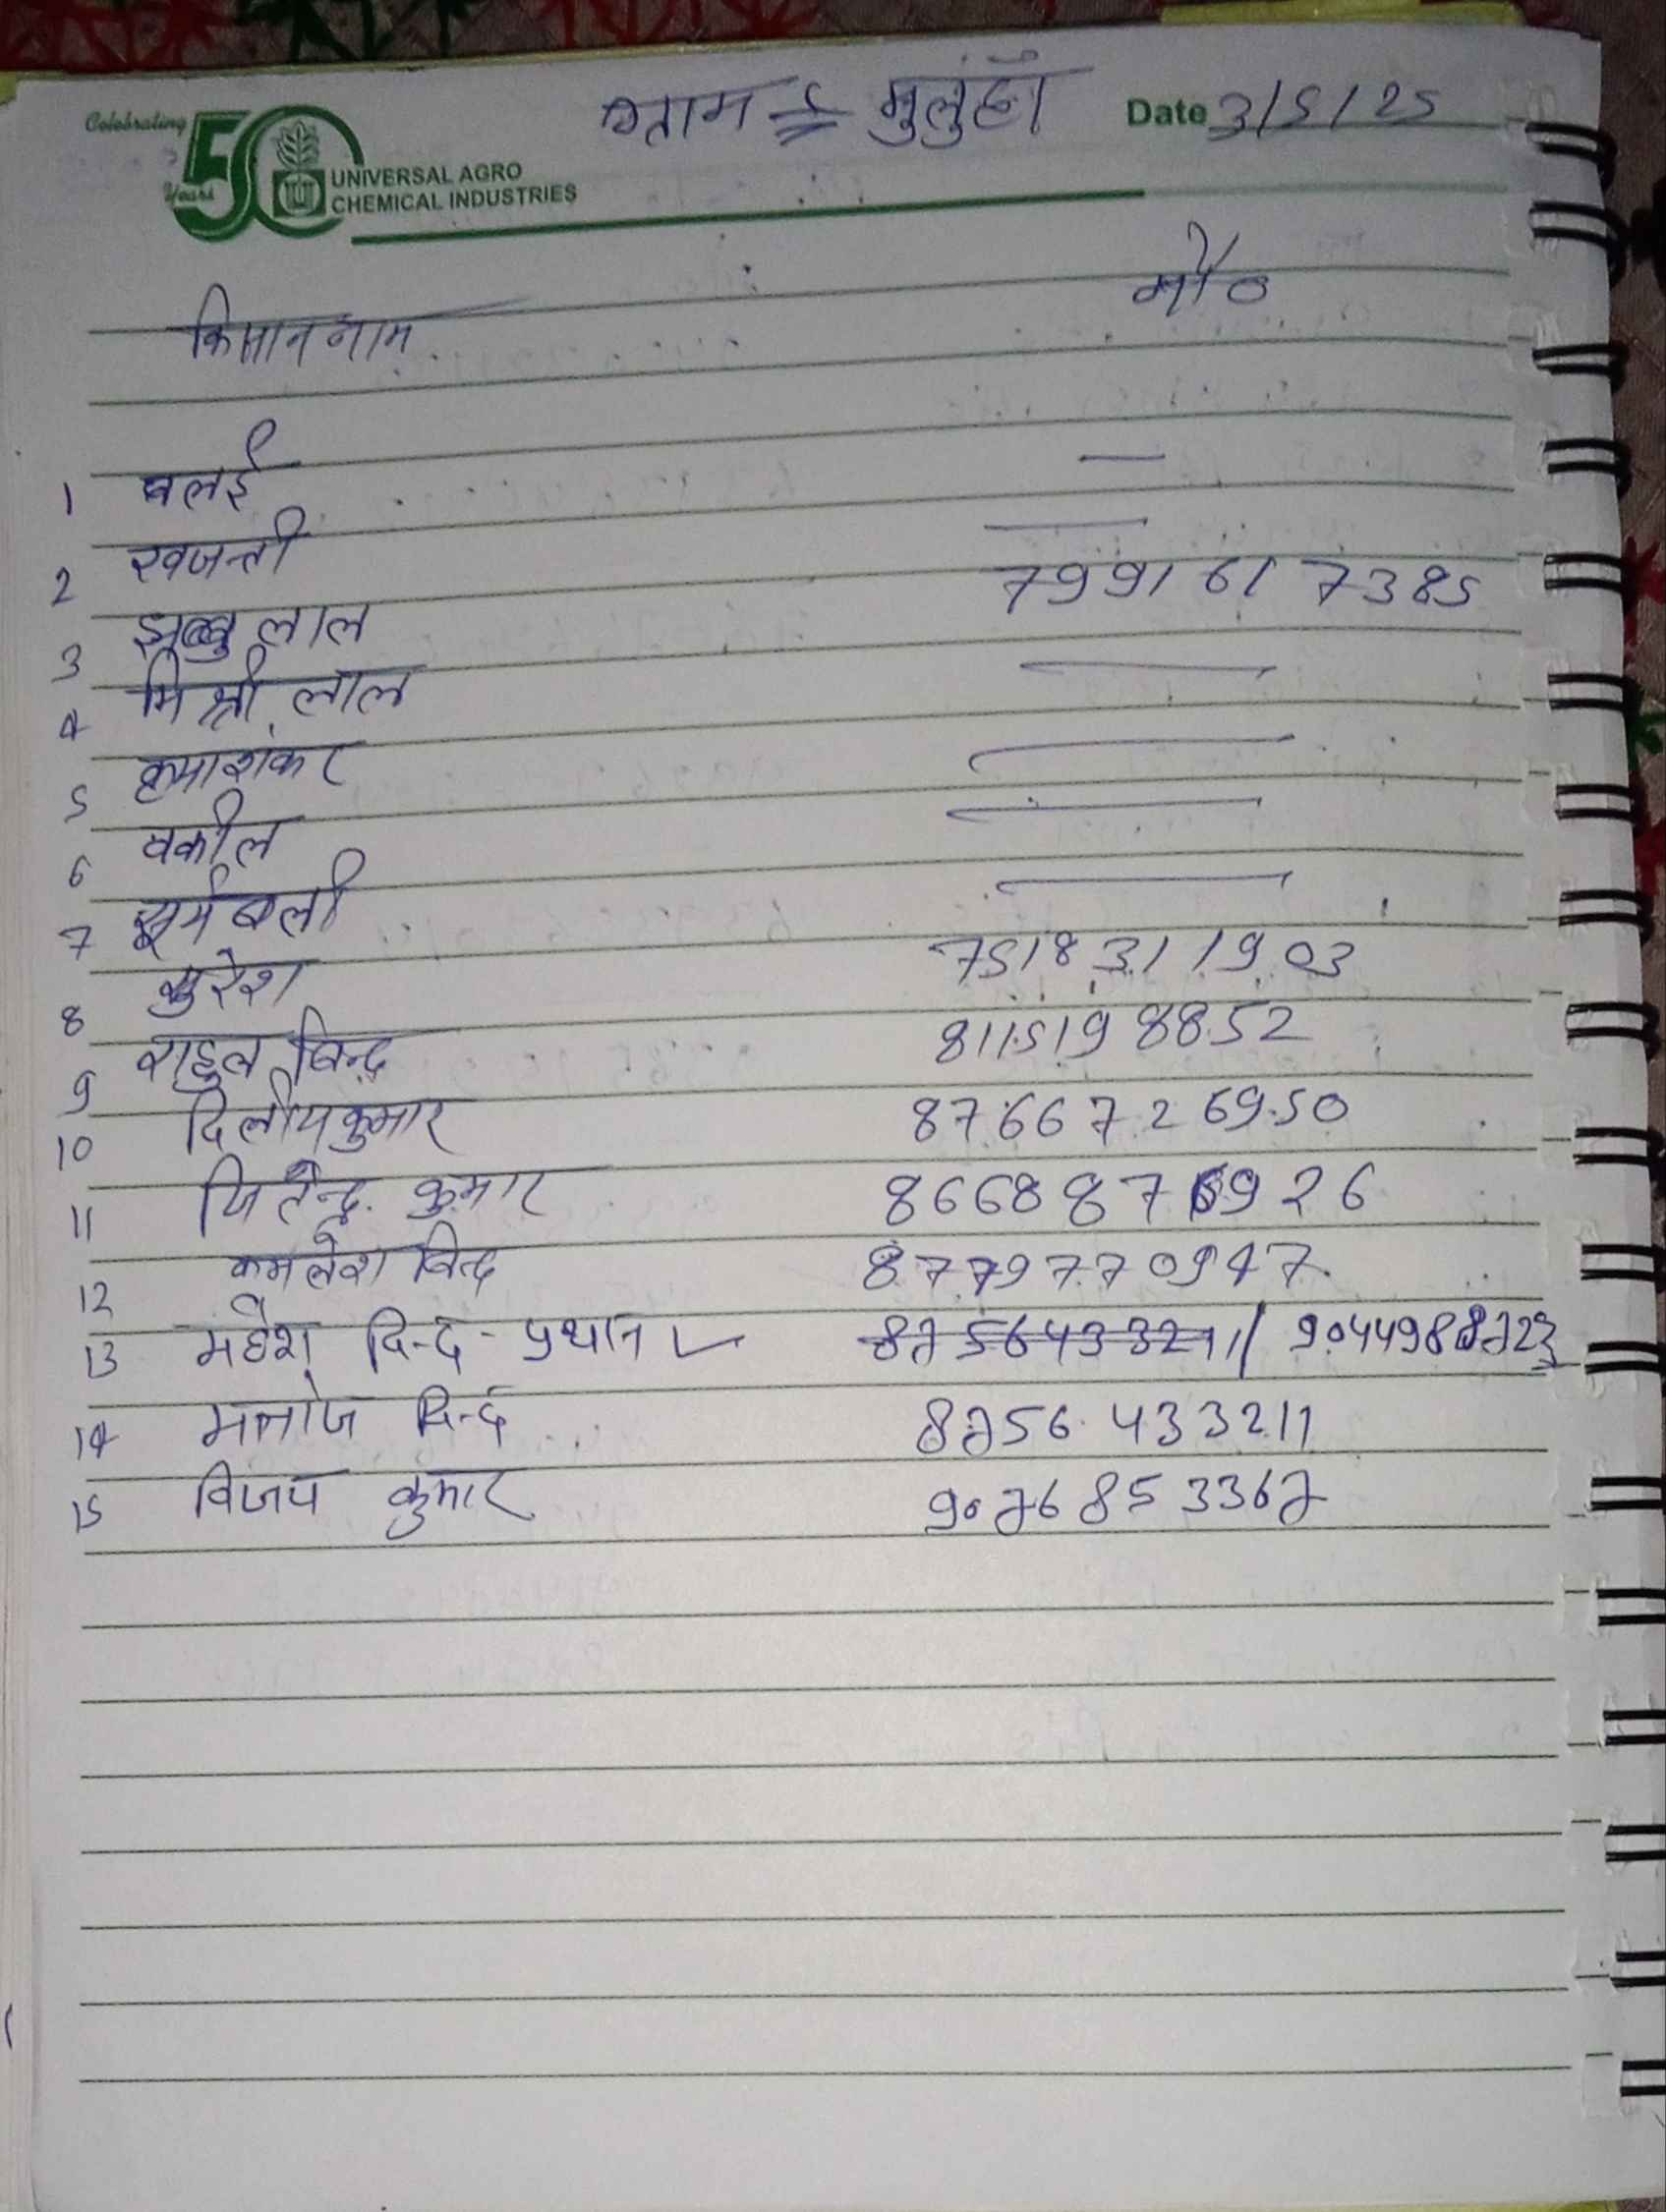 Celebrating
50 Years
UNIVERSAL AGRO
CHEMICAL INDUSTRIES
ग्राम = मुलुहाँ
Date 3/5/25
किसान नाम मो०
1 बलई —
2 —
3 झब्बु लाल 7991617385
4 मिश्री लाल —
5 —
6 वकील —
7 सूर्य बली —
8 सुरेश 7518311903
9 राहुल बिन्द 8115198852
10 दिलीप कुमार 8766726950
11 जितेन्द्र कुमार 8668876926
12 कमलेश बिन्द 8779770947
13 महेश बिन्द - प्रधान 8756433211 / 9044988723
14 मनोज बिन्द 8756433211
15 विजय कुमार 9076853367